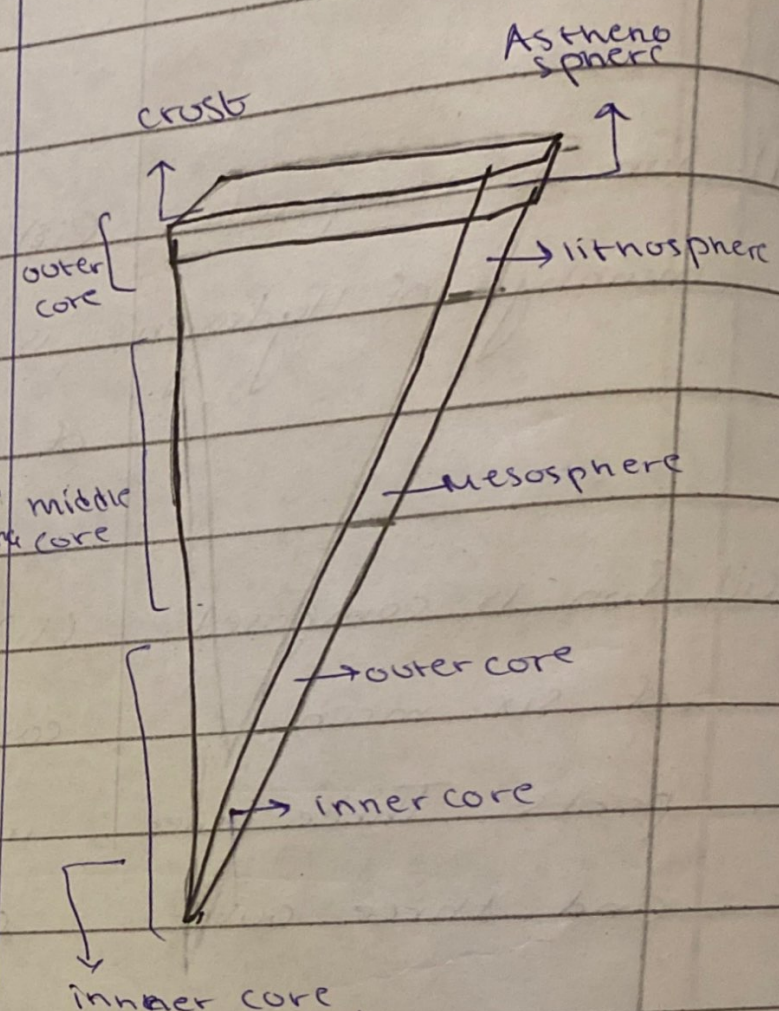 Astheno
sphere
crust
outer
core
lithosphere
middle
core
Mesosphere
outer core
inner core
innner core